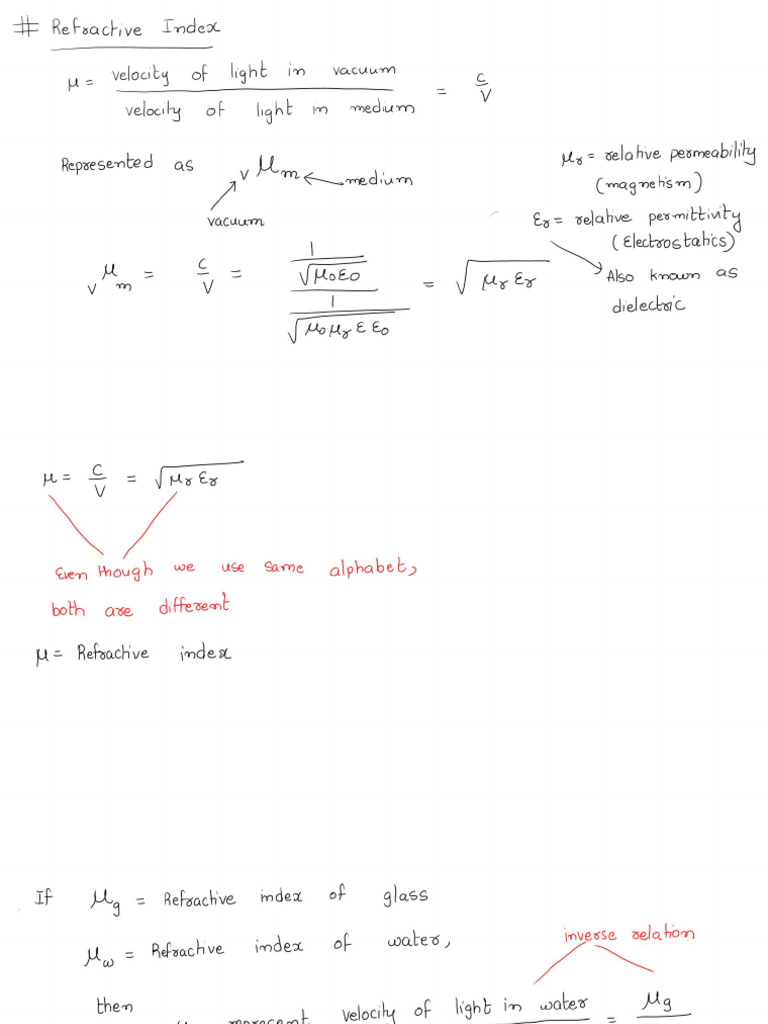 # Refractive Index
μ = velocity of light in vacuum / velocity of light in medium = c/v
Represented as vμm ← medium
vacuum
μr = relative permeability
(magnetism)
εr = relative permittivity
(Electrostatics)
Also known as
dielectric
vμm = c/v = (1/√μ0ε0) / (1/√μ0μr ε ε0) = √μr εr
μ = c/v = √μr εr
Even though we use same alphabet,
both are different
μ = Refractive index
If μg = Refractive index of glass
μw = Refractive index of water,
inverse relation
then
velocity of light in water = μg